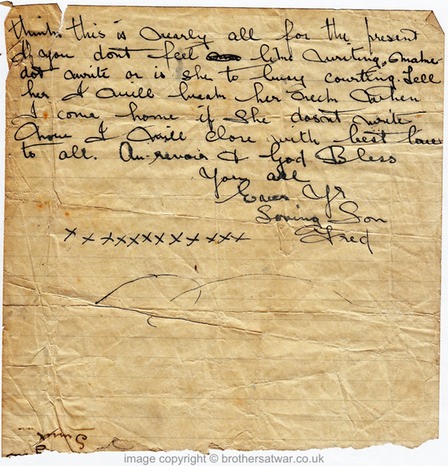 think this is nearly all for the present
If you dont feel like writing, make
dot write or is she to busy courting. Tell
her I will break her neck when
I come home if she doesnt write
I will close with best love
to all. Au-revoir & God Bless
You all
Ever Yr
Loving Son
Fred
xxxxxxxxxxxx
image copyright © brothersatwar.co.uk